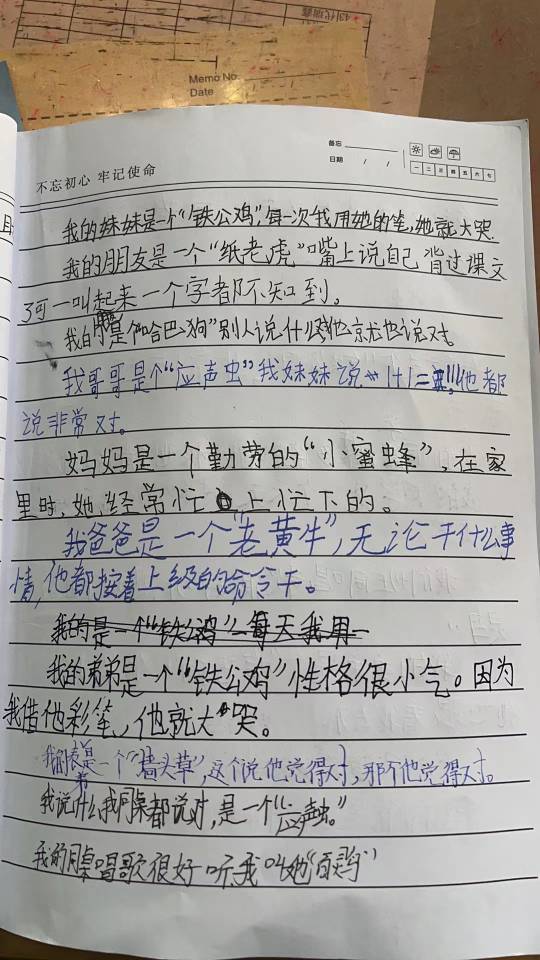 Memo No.
Date
备忘
日期 / /
一 二 三 四 五 六 七
不忘初心 牢记使命
我的妹妹是一个“铁公鸡”,每一次我用她的笔,她就大哭.
我的朋友是一个“纸老虎”嘴上说自己背过课文
了可一叫起来一个字都不知到。
我的是个“哈巴狗”别人说什么他京尤也说对。
我哥哥是个“应声虫”我妹妹说 1+1=王!!!他都
说非常对。
妈妈是一个勤劳的“小蜜蜂”,在家
里时,她,经常忙上忙下的。
我爸爸是一个“老黄牛”,无论干什么事
情,他都按着上级的命令干。
我的是一个“铁公鸡”每天我用
我的弟弟是一个“铁公鸡”性格很小气。因为
我借他彩笔,他就大哭。
我的表弟是一个“墙头草”,这个说他觉得对,那个他觉得对。
我说什么我同桌都说对,是一个“应声虫。”
我的同桌唱歌很好听,我叫她“百灵鸟”